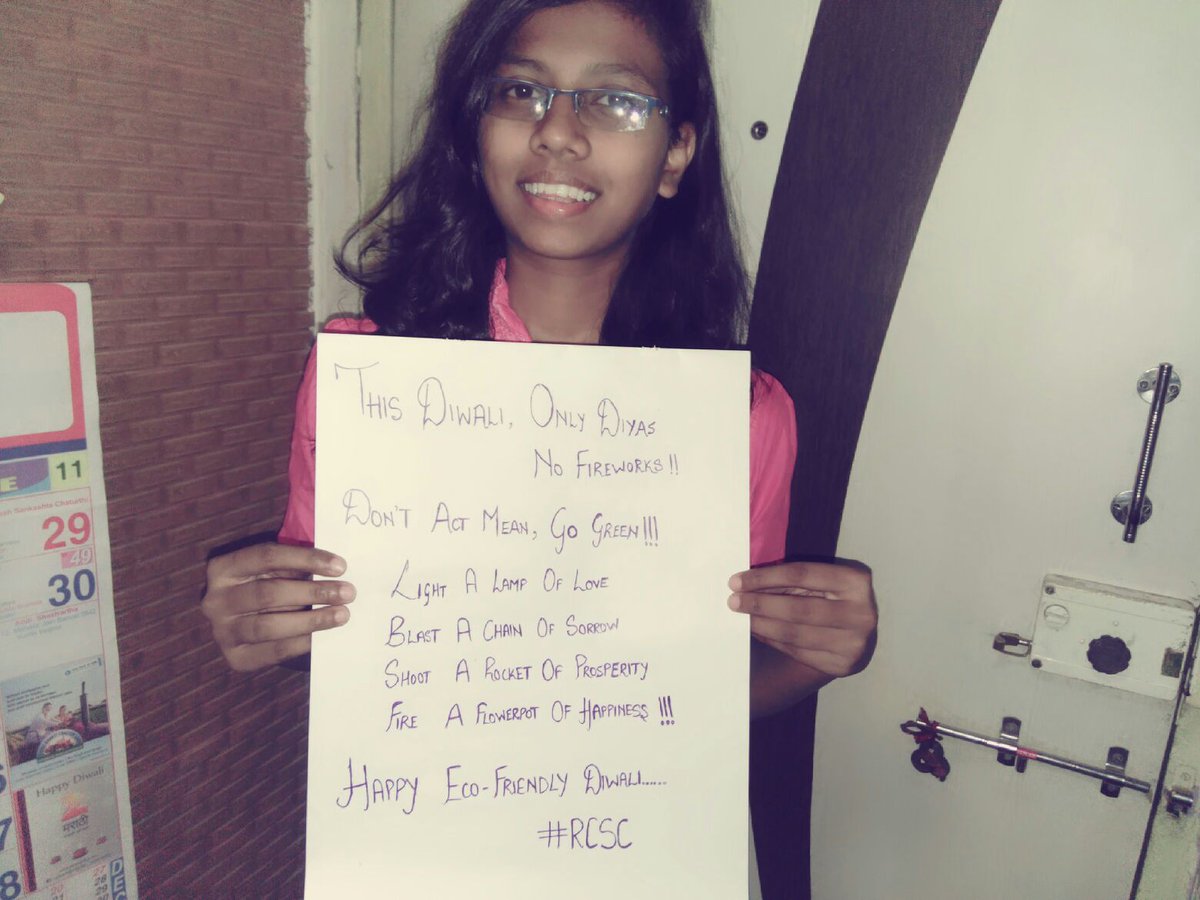 THIS DIWALI, ONLY DIYAS
NO FIREWORKS!!
DON'T ACT MEAN, GO GREEN!!!
LIGHT A LAMP OF LOVE
BLAST A CHAIN OF SORROW
SHOOT A ROCKET OF PROSPERITY
FIRE A FLOWERPOT OF HAPPINESS!!!
HAPPY ECO-FRIENDLY DIWALI......
#RCSC
E 11
29
49
30
Happy Diwali
मराठी
7
8
DEC
27
28
29